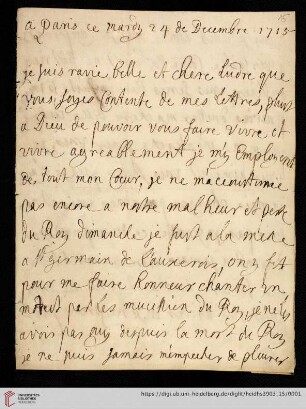 a Paris ce mardy 24 de Decembre 1715
je suis ravie belle et chere Ludre que
vous soyes Contente de mes lettres, plust
a Dieu de pouvoir vous faire vivre et
vivre agreablement je m'y Employerois
de tout mon Cœur, je ne macoustume
pas encore a nostre malheur et perte
du Roy dimanche je fust a la messe
a St germain de Lauxerois, on y fit
pour me faire honneur chanter un
motest par les musitien du Roy, je ne les
avois pas ouy despuis la mort du Roy
je ne puis jamais m'empecher de pleurer
https://digi.ub.uni-heidelberg.de/diglit/heidhs3903_15/0001